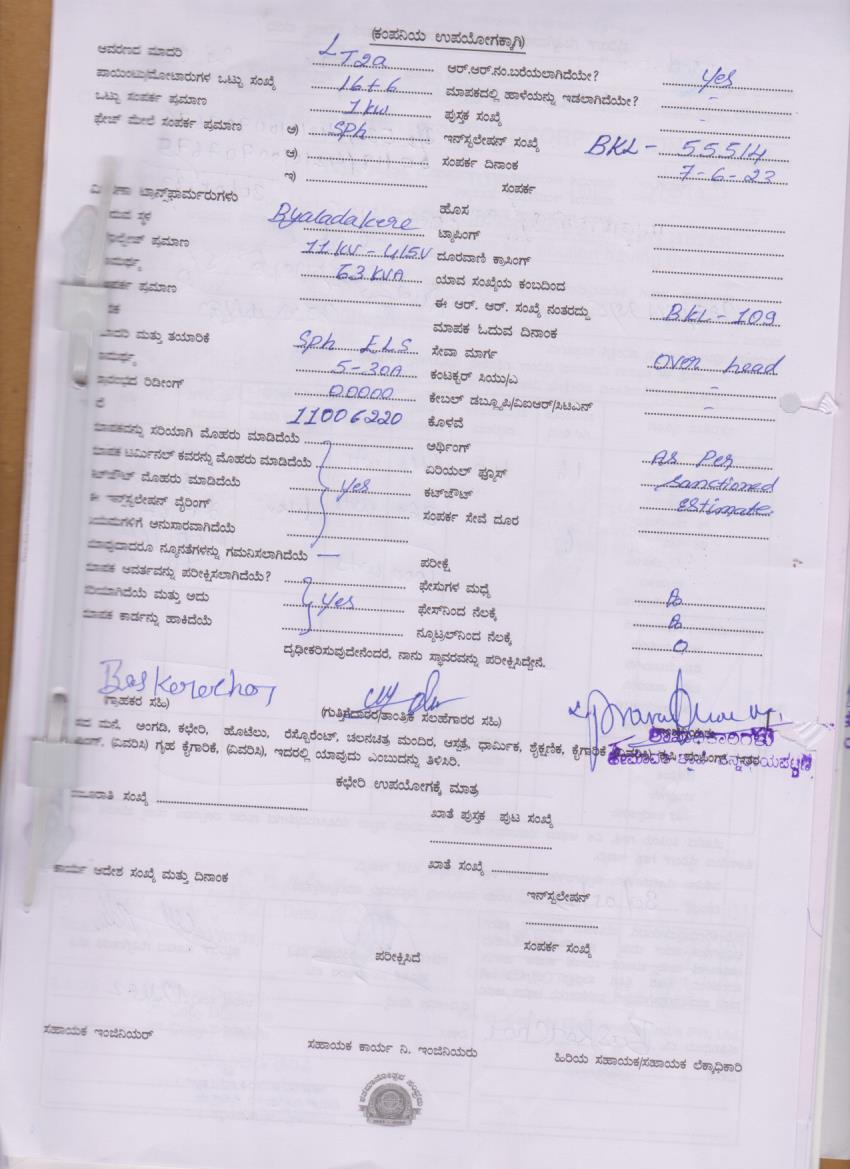 (ಕಂಪನಿಯ ಉಪಯೋಗಕ್ಕಾಗಿ)
ಆವರಣದ ಮಾದರಿ LT2a ಆರ್.ಆರ್.ನಂ.ಬರೆಯಲಾಗಿದೆಯೇ? yes
ಪಾಯಿಂಟು/ಮೋಟಾರುಗಳ ಒಟ್ಟು ಸಂಖ್ಯೆ 16+6 ಮಾಪಕದಲ್ಲಿ ಹಾಳೆಯನ್ನು ಇಡಲಾಗಿದೆಯೇ? -
ಒಟ್ಟು ಸಂಪರ್ಕ ಪ್ರಮಾಣ 1 kw ಪುಸ್ತಕ ಸಂಖ್ಯೆ -
ಫೇಜ್ ಮೇಲೆ ಸಂಪರ್ಕ ಪ್ರಮಾಣ ಅ) Sph ಇನ್‌ಸ್ಟಲೇಷನ್ ಸಂಖ್ಯೆ BKL - 55514
ಆ) ಸಂಪರ್ಕ ದಿನಾಂಕ 7-6-23
ಇ) ಸಂಪರ್ಕ
ಟ್ರಾನ್ಸ್‌ಫಾರ್ಮರುಗಳು ಹೊಸ
ಸ್ಥಳ Byaladakere ಟ್ಯಾಪಿಂಗ್
ಪ್ರಮಾಣ 11KV - 415V ದೂರವಾಣಿ ಕ್ರಾಸಿಂಗ್
63 KVA ಯಾವ ಸಂಖ್ಯೆಯ ಕಂಬದಿಂದ
ಪ್ರಮಾಣ ಈ ಆರ್. ಆರ್. ಸಂಖ್ಯೆ ನಂತರದ್ದು BKL - 109
ಮಾಪಕ ಓದುವ ದಿನಾಂಕ
ಮತ್ತು ತಯಾರಿಕೆ Sph ELS ಸೇವಾ ಮಾರ್ಗ Over head
5-30A ಕಂಟಕ್ಟರ್ ಸಿಯು/ಎ -
ರಿಡೀಂಗ್ 00000 ಕೇಬಲ್ ಡಬ್ಲ್ಯೂಪಿ/ವಿಐಆರ್/ಸಿಟಿಎಸ್ -
11006220 ಕೊಳವೆ
ಸರಿಯಾಗಿ ಮೊಹರು ಮಾಡಿದೆಯೆ ಆರ್ಥಿಂಗ್ As Per
ಟರ್ಮಿನಲ್ ಕವರನ್ನು ಮೊಹರು ಮಾಡಿದೆಯೆ ಏರಿಯಲ್ ಫ್ಯೂಸ್ sanctioned
ಮೊಹರು ಮಾಡಿದೆಯೆ yes ಕಟ್‌ಔಟ್ estimate
ಈ ಇನ್‌ಸ್ಟಲೇಷನ್ ವೈರಿಂಗ್ ಸಂಪರ್ಕ ಸೇವೆ ದೂರ
ಅನುಸಾರವಾಗಿದೆಯೆ
ನ್ಯೂನತೆಗಳನ್ನು ಗಮನಿಸಲಾಗಿದೆಯೆ — ಪರೀಕ್ಷೆ
ಆವರ್ತವನ್ನು ಪರೀಕ್ಷಿಸಲಾಗಿದೆಯೆ? ಫೇಸುಗಳ ಮಧ್ಯೆ
ಮತ್ತು ಅದು yes ಫೇಸ್‌ನಿಂದ ನೆಲಕ್ಕೆ
ಕಾರ್ಡನ್ನು ಹಾಕಿದೆಯೆ ನ್ಯೂಟ್ರಲ್‌ನಿಂದ ನೆಲಕ್ಕೆ 0
ದೃಢೀಕರಿಸುವುದೇನೆಂದರೆ, ನಾನು ಸ್ಥಾವರವನ್ನು ಪರೀಕ್ಷಿಸಿದ್ದೇನೆ.
(ಗ್ರಾಹಕರ ಸಹಿ) (ಗುತ್ತಿಗೆದಾರರ/ತಾಂತ್ರಿಕ ಸಲಹೆಗಾರರ ಸಹಿ)
ಮನೆ, ಅಂಗಡಿ, ಕಛೇರಿ, ಹೊಟೆಲು, ರೆಸ್ಟೊರೆಂಟ್, ಚಲನಚಿತ್ರ ಮಂದಿರ, ಆಸ್ಪತ್ರೆ, ಧಾರ್ಮಿಕ, ಶೈಕ್ಷಣಿಕ, ಕೈಗಾರಿಕೆ
(ವಿವರಿಸಿ) ಗೃಹ ಕೈಗಾರಿಕೆ, (ವಿವರಿಸಿ), ಇದರಲ್ಲಿ ಯಾವುದು ಎಂಬುದನ್ನು ತಿಳಿಸಿರಿ.
ಕಛೇರಿ ಉಪಯೋಗಕ್ಕೆ ಮಾತ್ರ
ಸಂಖ್ಯೆ ಖಾತೆ ಪುಸ್ತಕ ಪುಟ ಸಂಖ್ಯೆ
ಕಾರ್ಯ ಆದೇಶ ಸಂಖ್ಯೆ ಮತ್ತು ದಿನಾಂಕ ಖಾತೆ ಸಂಖ್ಯೆ
ಇನ್‌ಸ್ಟಲೇಷನ್
ಸಂಪರ್ಕ ಸಂಖ್ಯೆ
ಪರೀಕ್ಷಿಸಿದೆ
ಸಹಾಯಕ ಇಂಜಿನಿಯರ್ ಸಹಾಯಕ ಕಾರ್ಯ ನಿ. ಇಂಜಿನಿಯರು ಹಿರಿಯ ಸಹಾಯಕ/ಸಹಾಯಕ ಲೆಕ್ಕಾಧಿಕಾರಿ